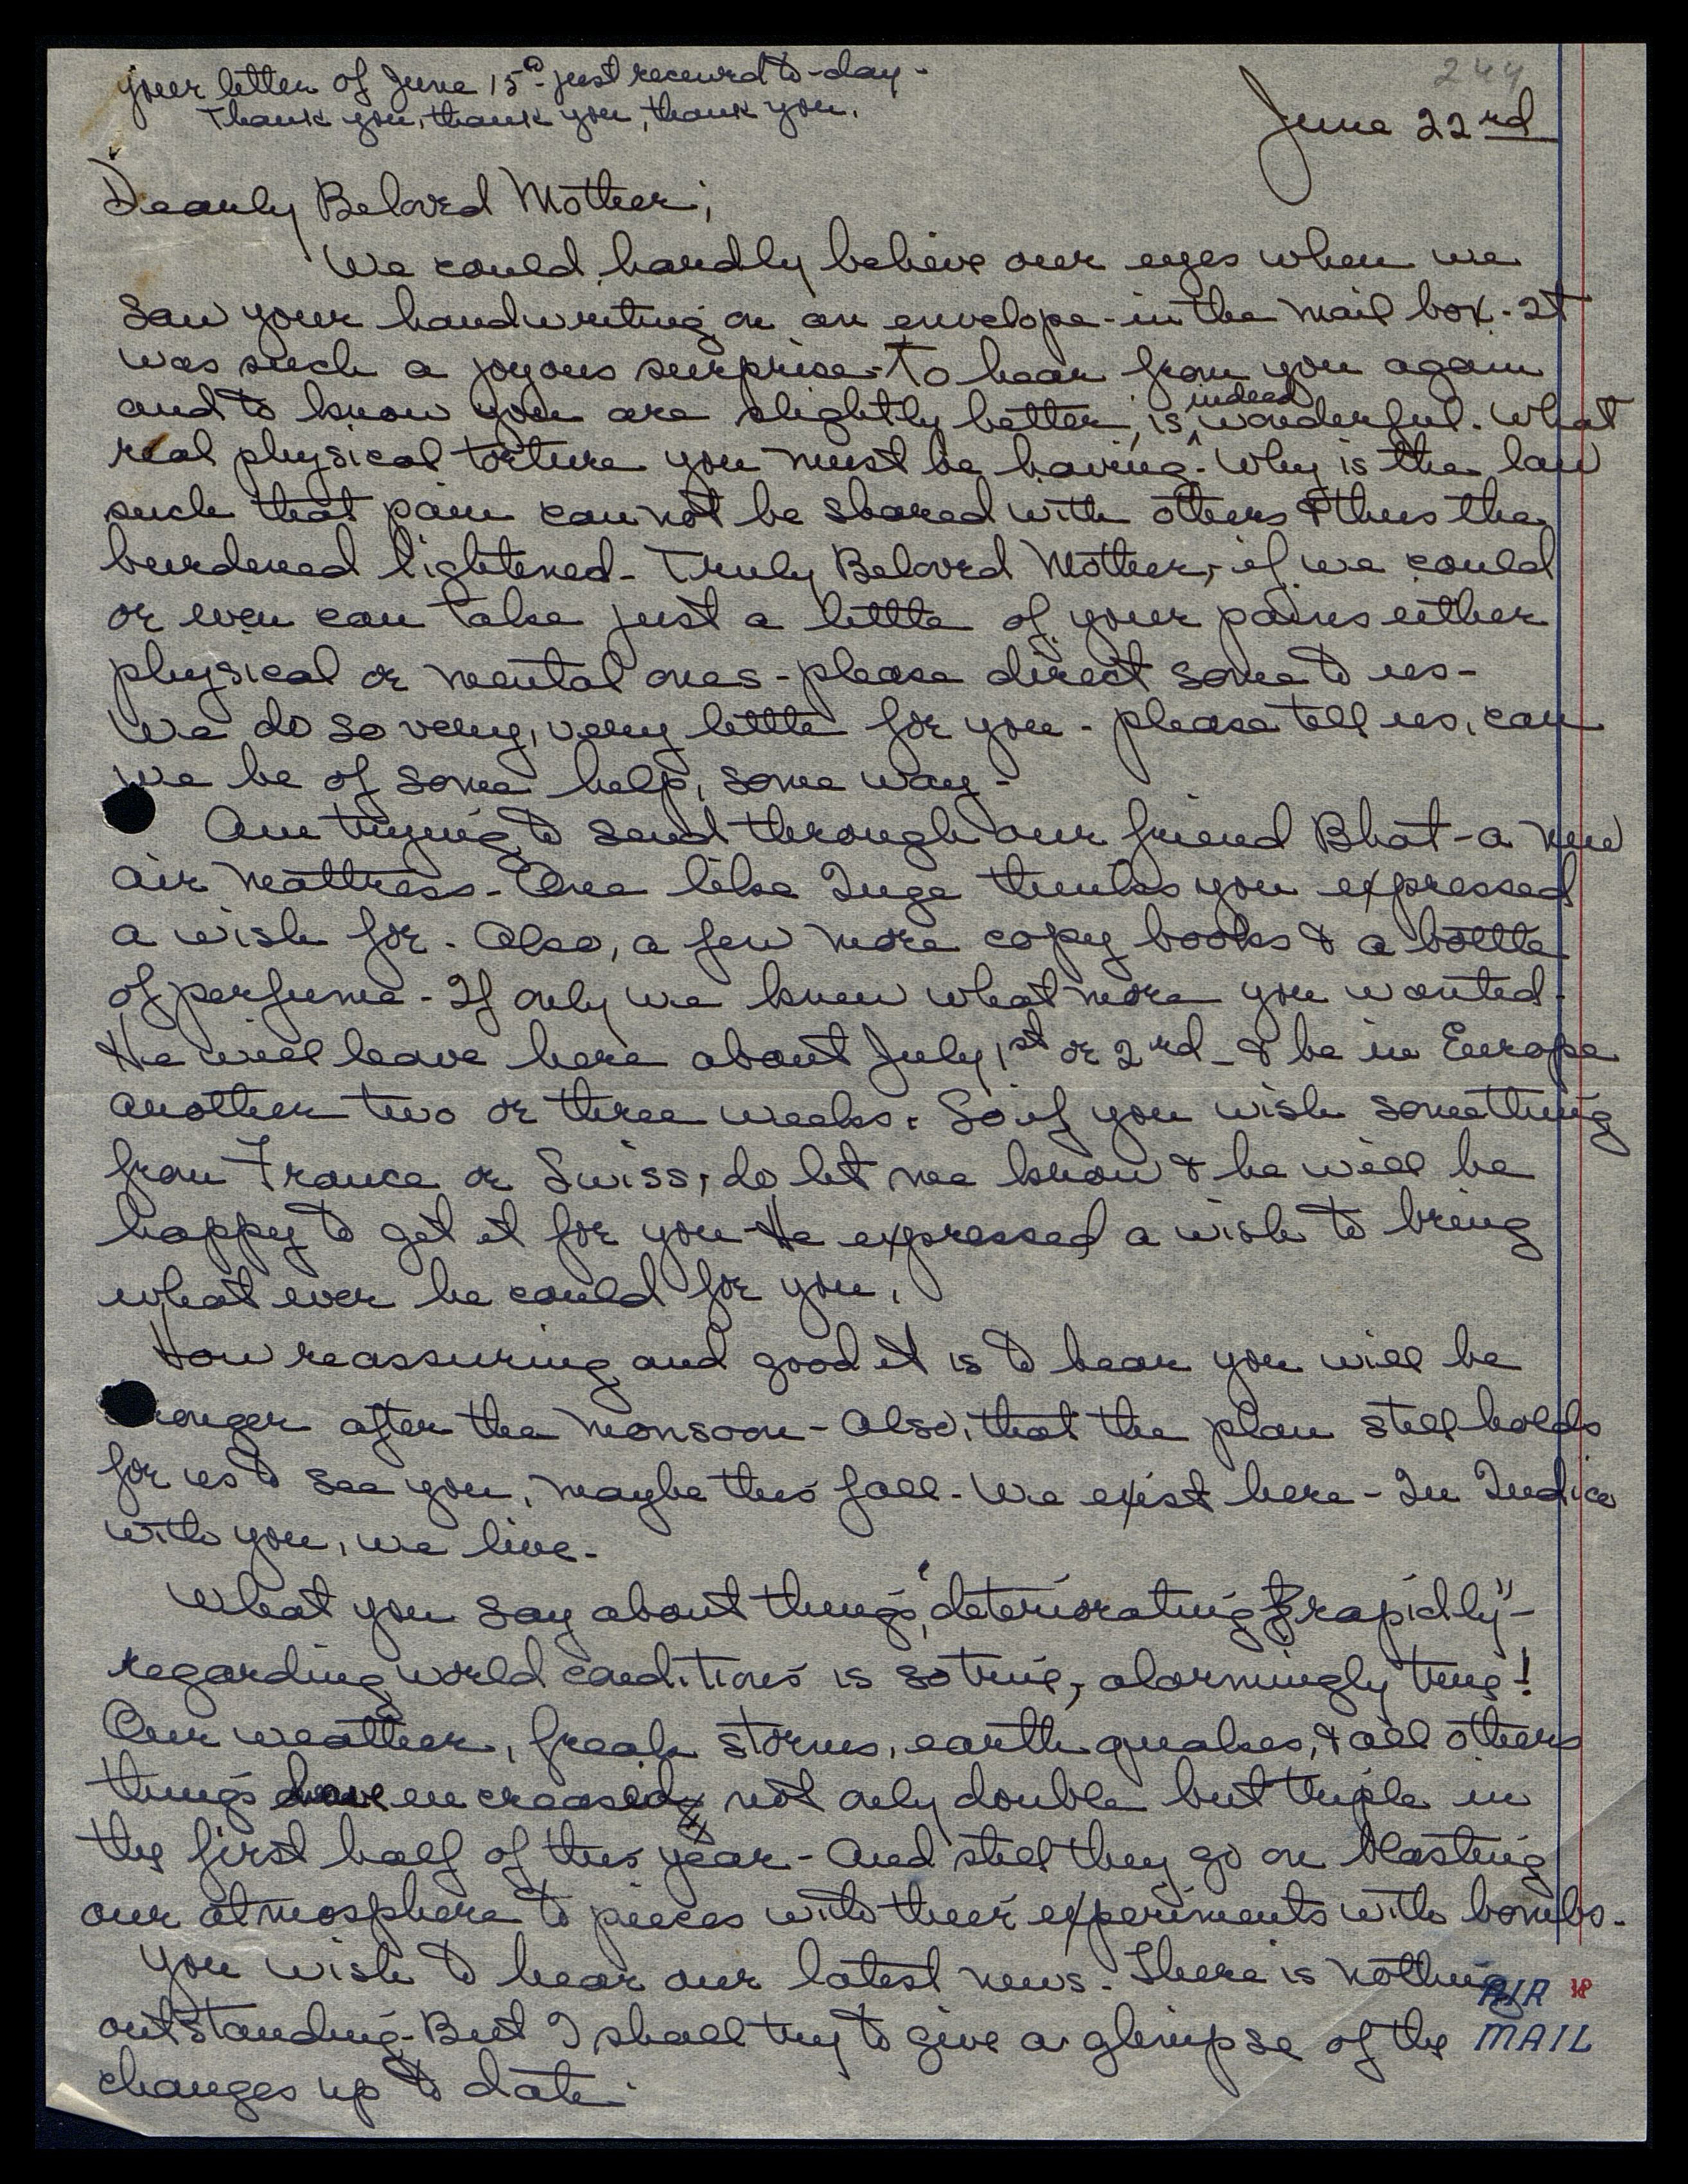 244
your letter of June 15th just received to-day -
Thank you, thank you, thank you.
June 22rd
Dearly Beloved Mother;
We could hardly believe our eyes when we
saw your handwriting on an envelope - in the mail box - It
was such a joyous surprise - To hear from you again
and to know you are slightly better, is indeed wonderful. What
real physical torture you must be having. Why is the law
such that pain can not be shared with others & thus the
burdened lightened - Truly Beloved Mother, if we could
or even can take just a little of your pains either
physical or mental ones - please direct some to us -
We do so very, very little for you - please tell us, can
we be of some help, some way -
Am trying to send through our friend Bhat - a new
air mattress - One like Inge thinks you expressed
a wish for. Also, a few more copy books & a bottle
of perfume - If only we knew what more you wanted.
He will leave here about July 1st or 2rd - & be in Europe
another two or three weeks. So if you wish something
from France or Swiss, do let me know & he will be
happy to get it for you - He expressed a wish to bring
what ever he could for you.
How reassuring and good it is to hear you will be
ronger after the monsoon - Also, that the plan still holds
for us to see you, maybe this fall - We exist here - In India
with you, we live -
What you say about things, "deteriorating rapidly" -
regarding world conditions is so true, alarmingly true!
Our weather, freak storms, earth quakes, & all others
things have encreased not only double but triple in
the first half of this year - And still they go on blasting
our atmosphere to pieces with their experiments with bombs.
You wish to hear our latest news. There is nothing
outstanding - But I shall try to give a glimpse of the
changes up to date.
AIR
MAIL